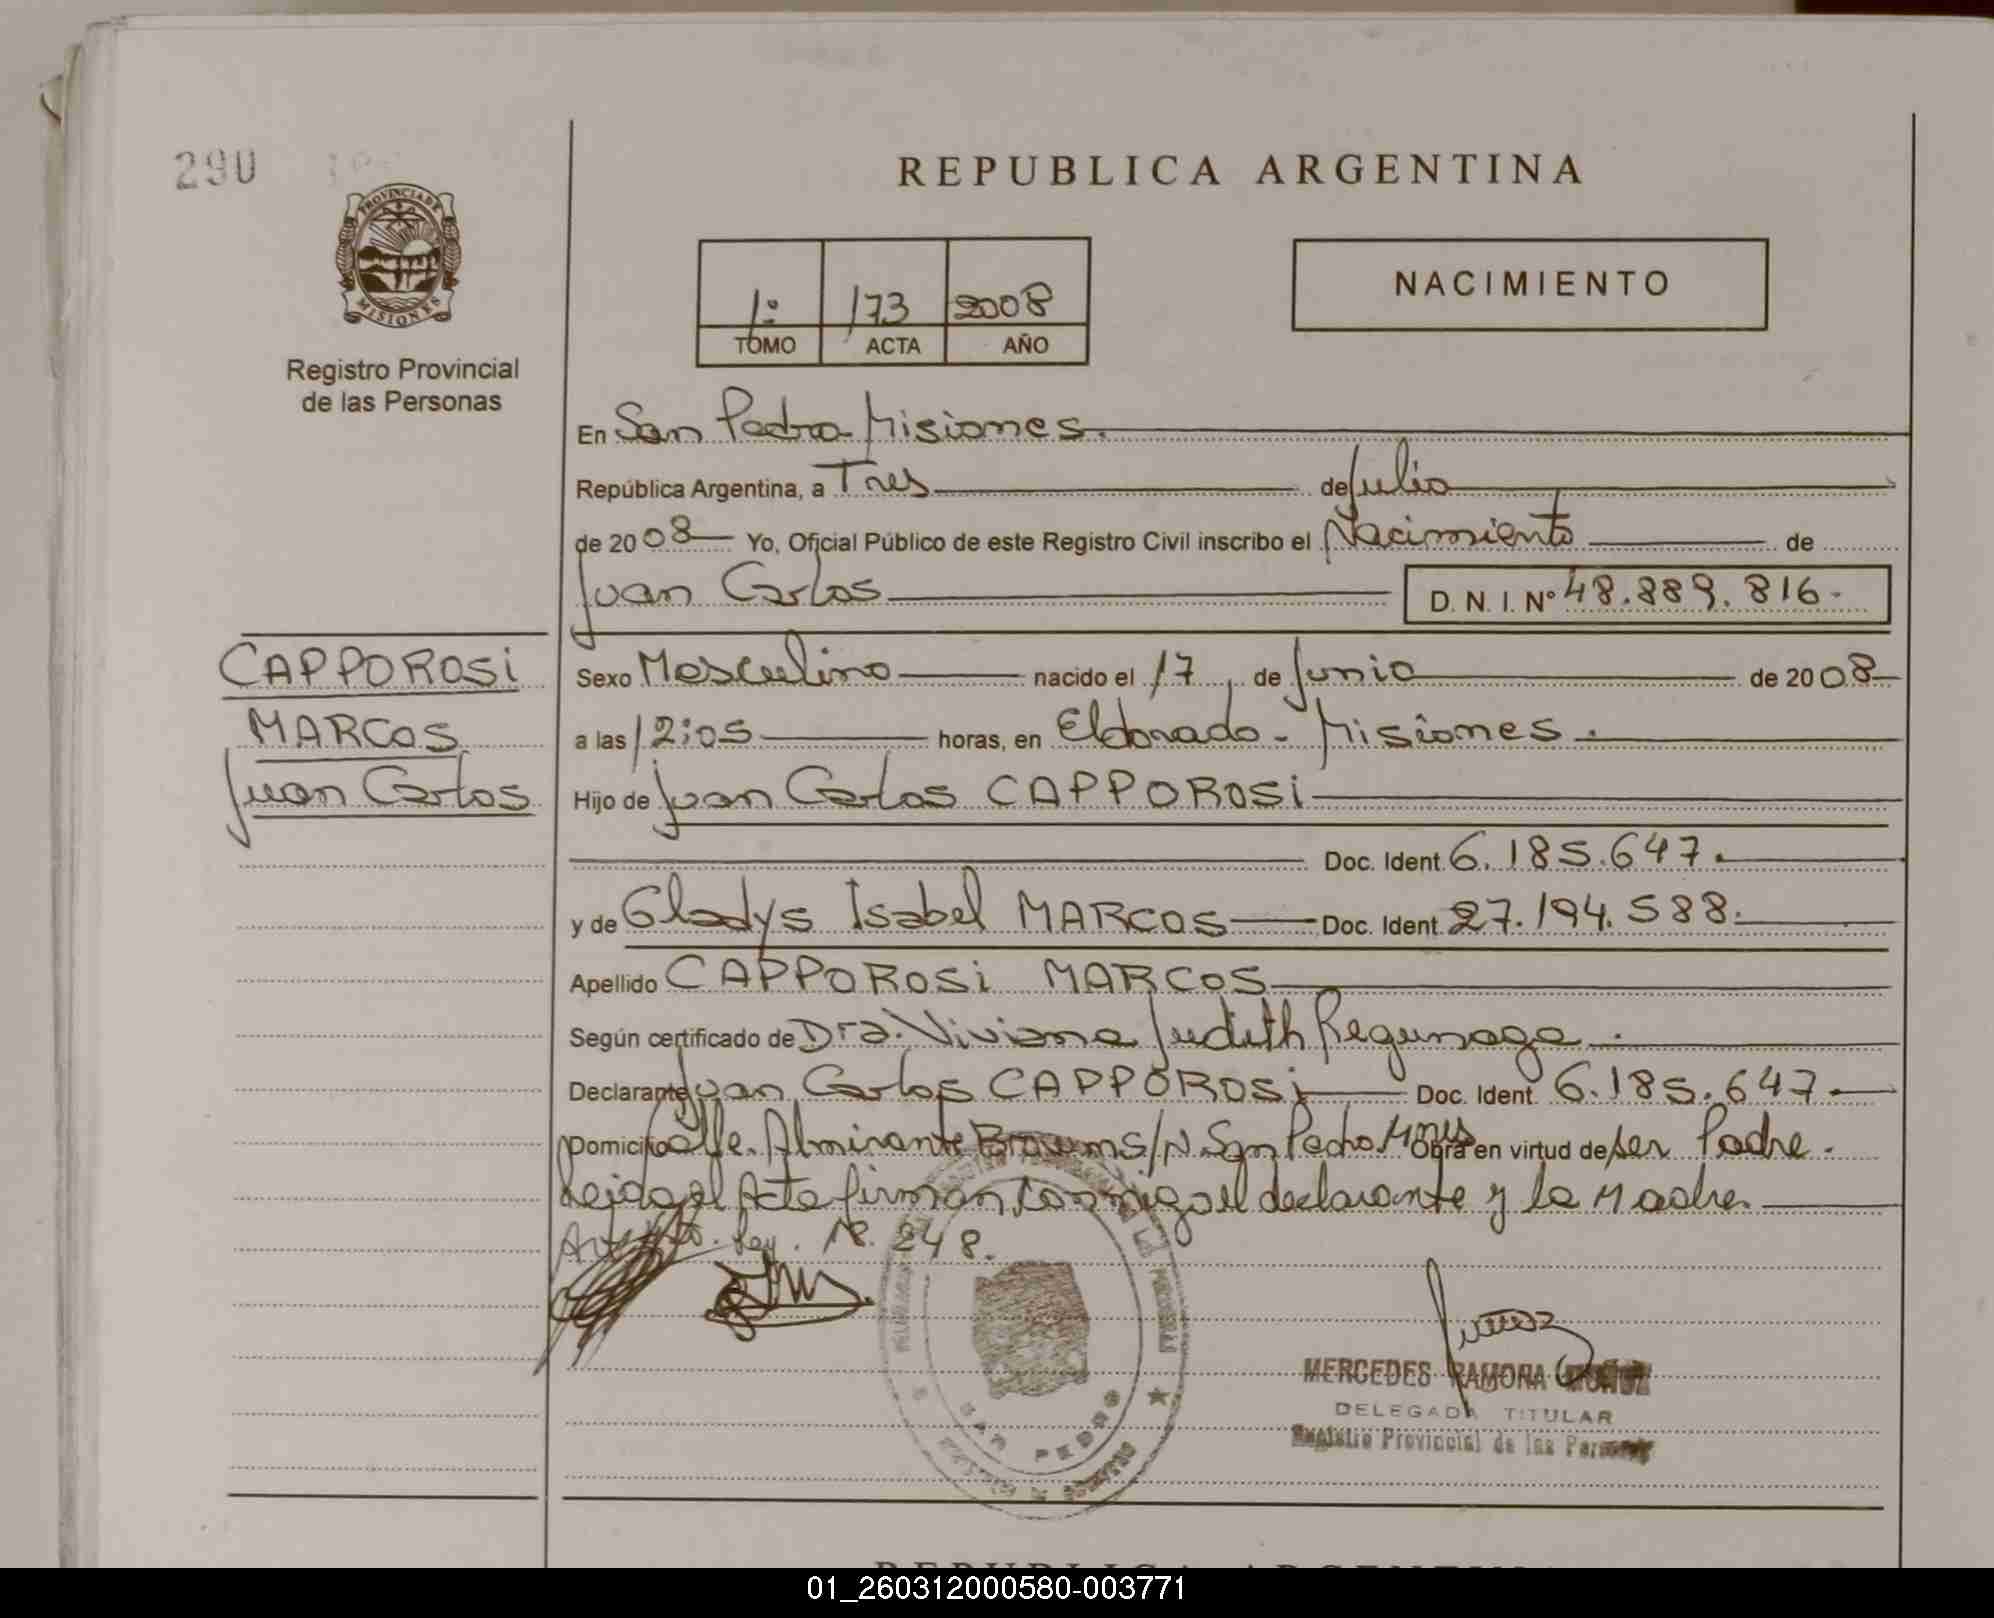 290
PROVINCIA DE
MISIONES
Registro Provincial
de las Personas
REPUBLICA ARGENTINA
1º 173 2008
TOMO ACTA AÑO
NACIMIENTO
En San Pedro Misiones.
República Argentina, a Tres de Julio
de 2008 Yo, Oficial Público de este Registro Civil inscribo el Nacimiento de
Juan Carlos D. N. I. Nº 48.889.816.
CAPPOROSi
MARCOS
Juan Carlos
Sexo Masculino nacido el 17 de Junio de 2008
a las 12:05 horas, en Eldorado - Misiones.
Hijo de Juan Carlos CAPPOROSi
Doc. Ident. 6.185.647.
y de Gladys Isabel MARCOS Doc. Ident. 27.194.588.
Apellido CAPPOROSi MARCOS
Según certificado de Dra. Viviana Judith Regunaga.
Declarante Juan Carlos CAPPOROSi Doc. Ident. 6.185.647.
Domicilio Calle. Almirante Brown S/N. San Pedro Mnes Obra en virtud de ser Padre.
Leida el Acta firman conmigo el declarante y la Madre.
Ley. Nº. 248.
SAN PEDRO
MERCEDES RAMONA MUÑOZ
DELEGADA TITULAR
Registro Provincial de las Personas
REPUBLICA ARGENTINA
01_260312000580-003771